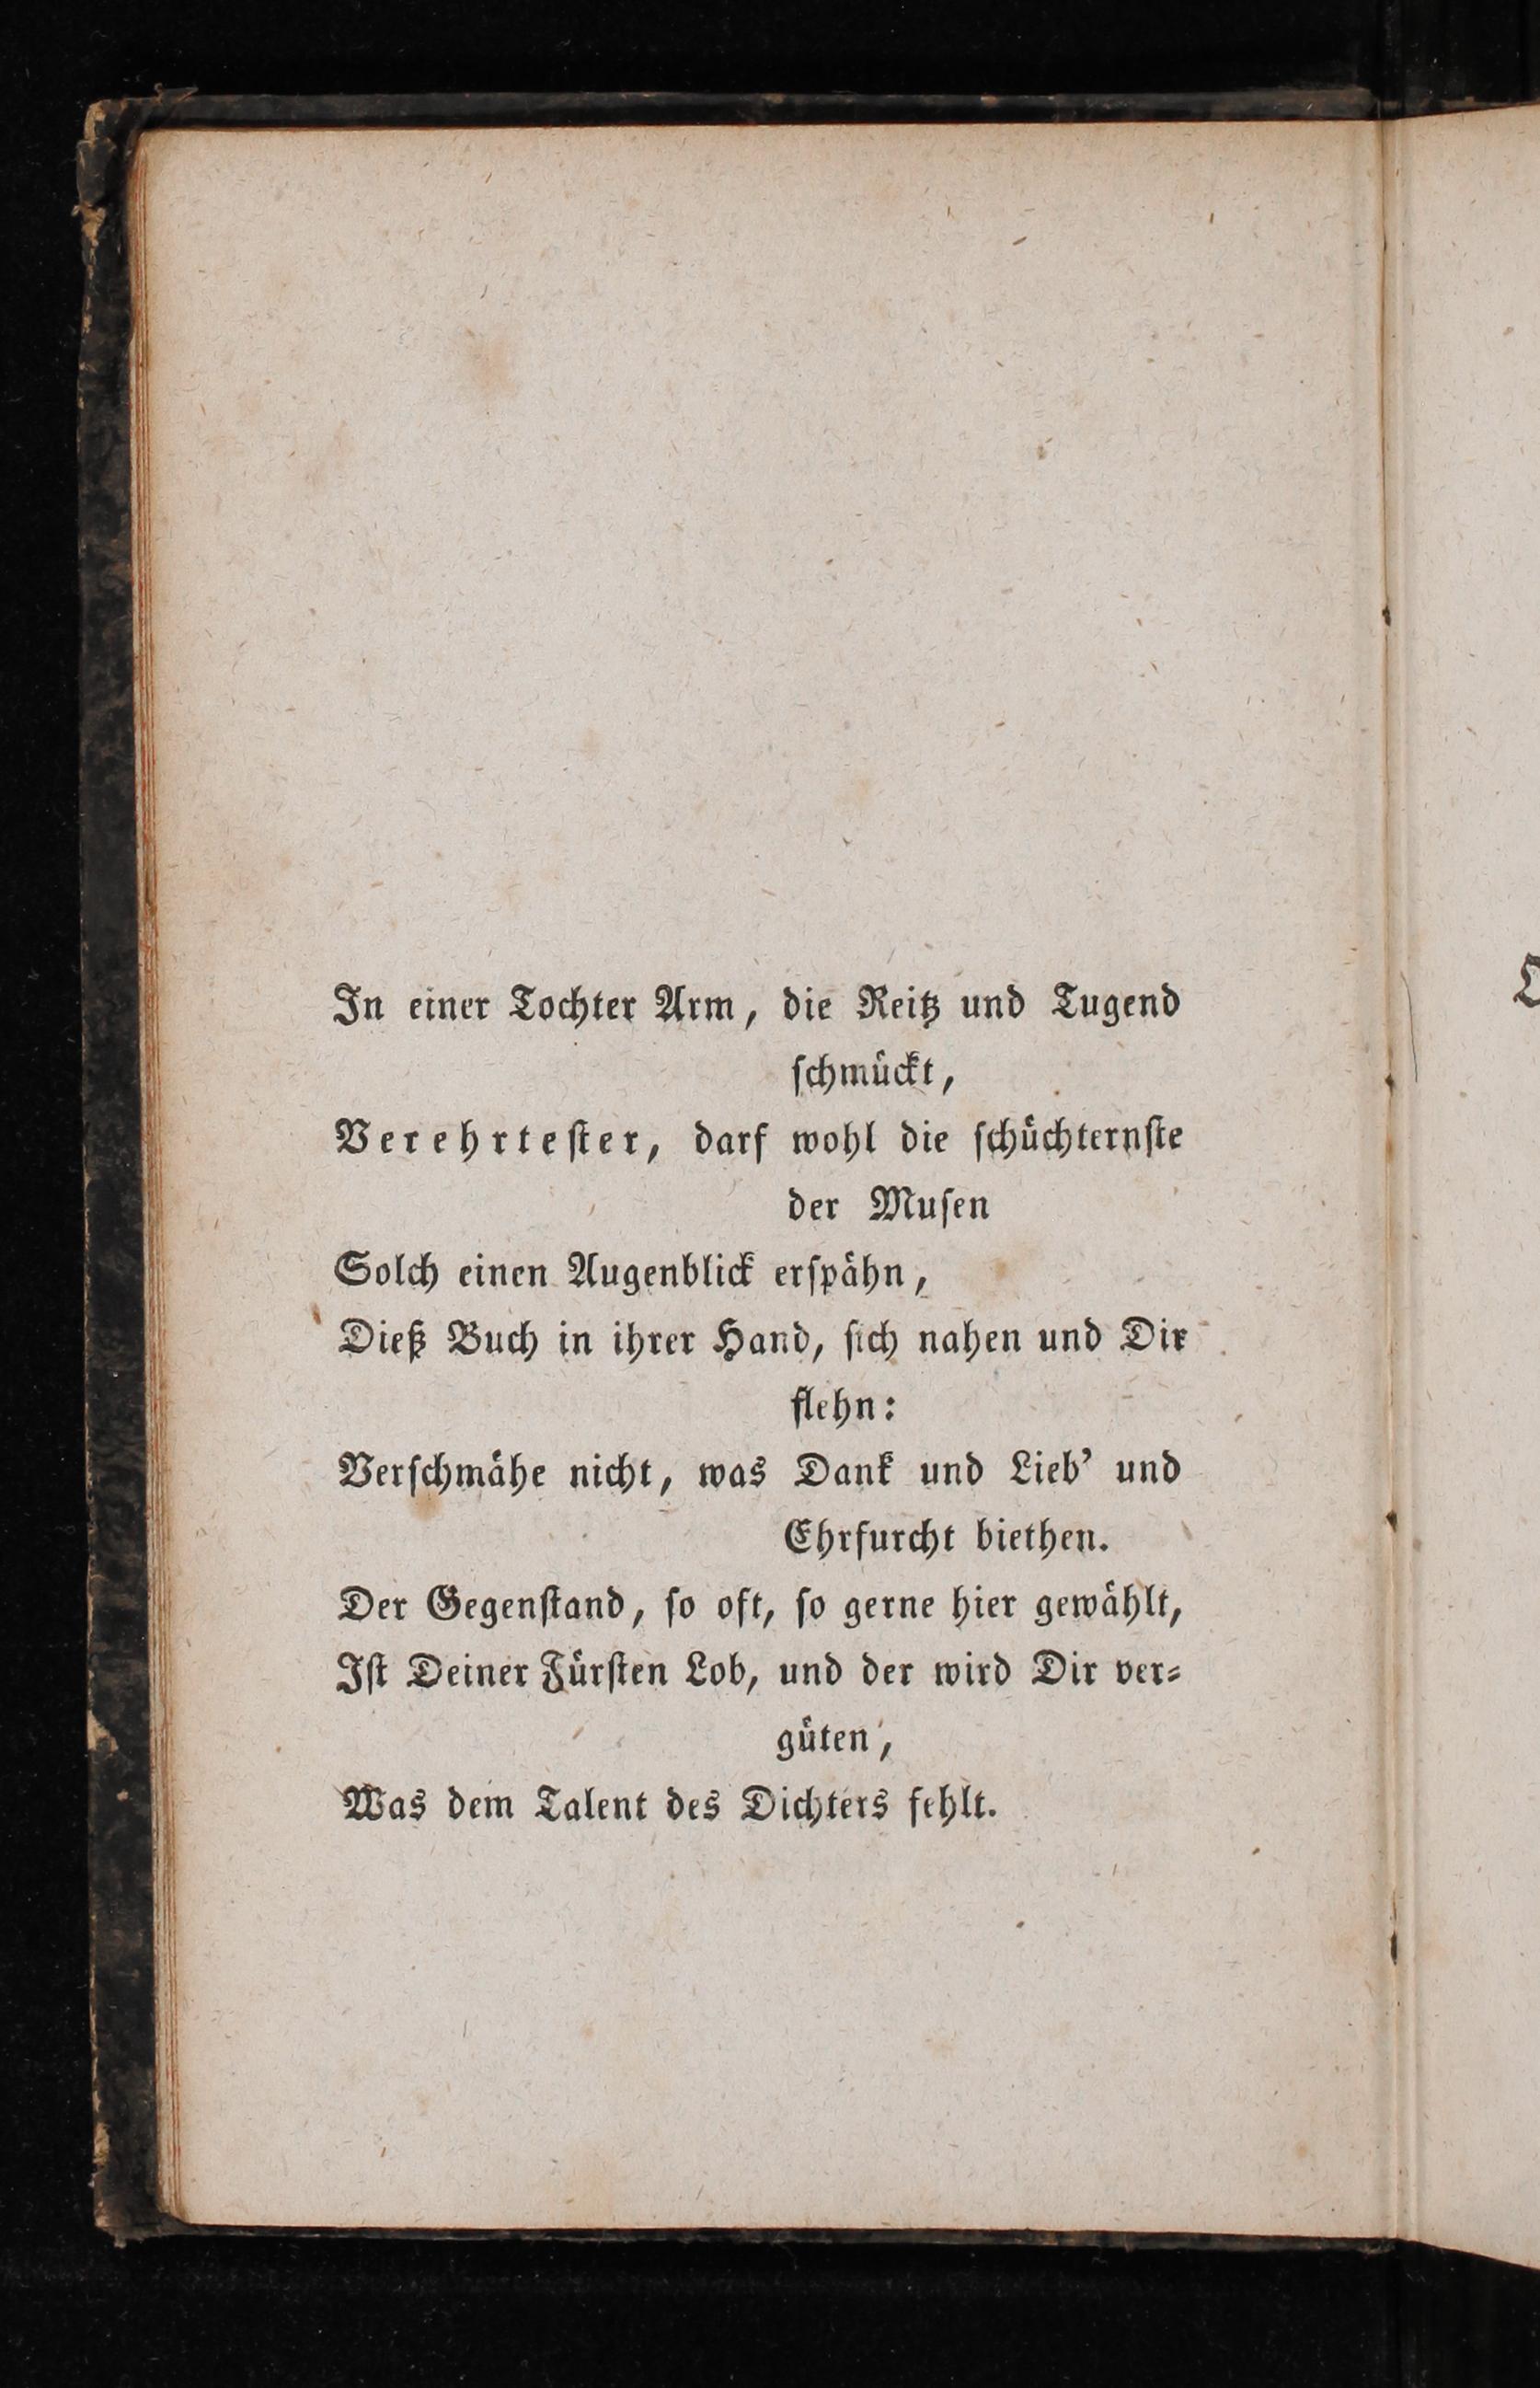 In einer Tochter Arm, die Reitz und Tugend
ſchmückt,
Verehrteſter, darf wohl die ſchüchternſte
der Muſen
Solch einen Augenblick erſpähn,
Dieß Buch in ihrer Hand, ſich nahen und Dir
flehn:
Verſchmähe nicht, was Dank und Lieb' und
Ehrfurcht biethen.
Der Gegenſtand, ſo oft, ſo gerne hier gewählt,
Iſt Deiner Fürſten Lob, und der wird Dir ver⸗
güten,
Was dem Talent des Dichters fehlt.